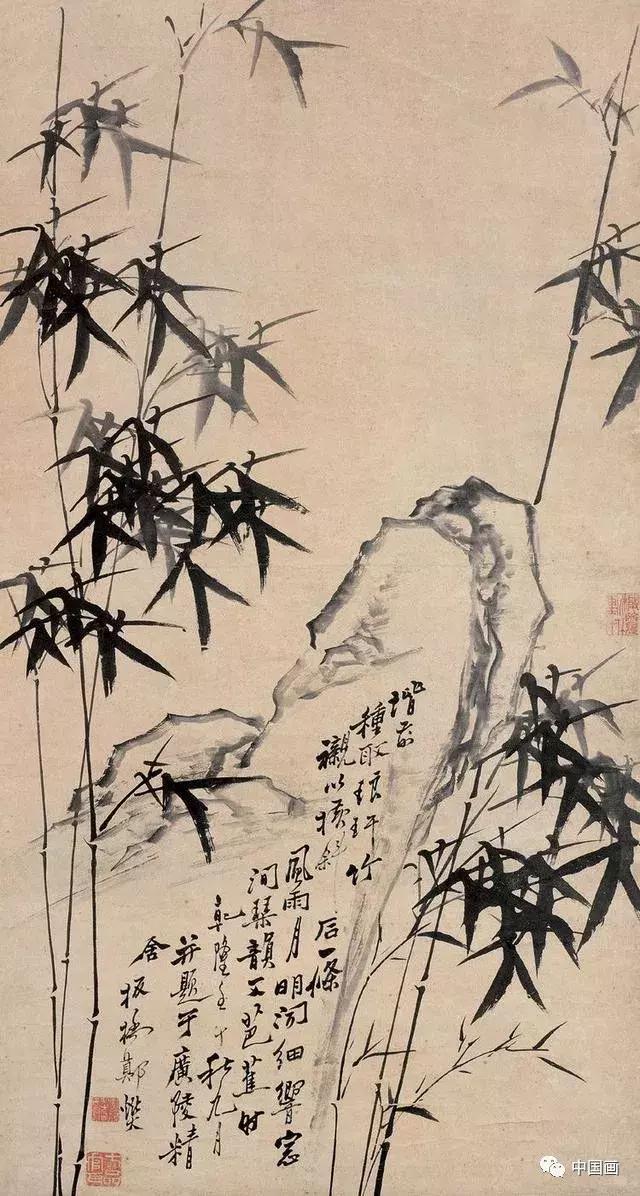 階前
種取琅玕竹
襯以橫斜
石一條
風雨月明聞細響窓
間琴韻又芭蕉时
乾隆壬午秋九月
并題于廣陵精
舍 板橋鄭燮
中国画